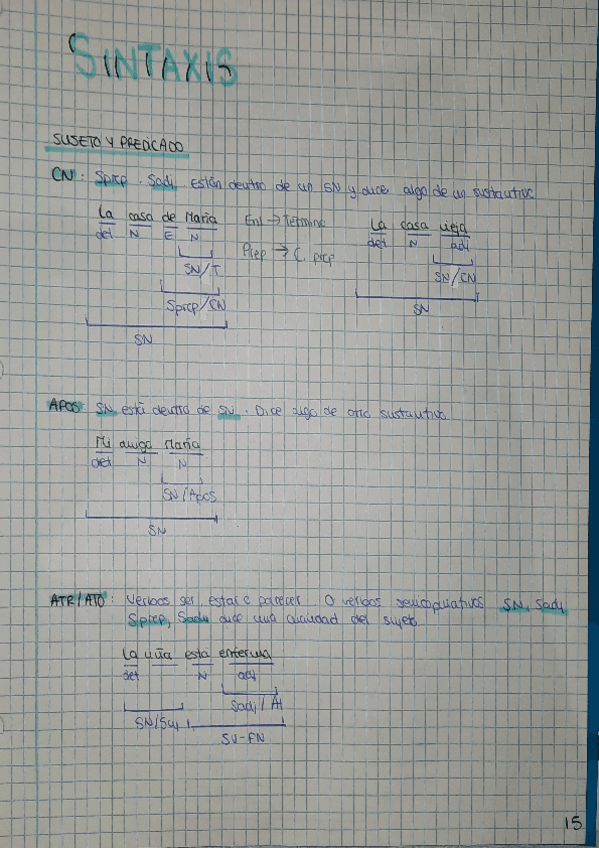 SINTAXIS
SUJETO Y PREDICADO
CN: Sprep. Sadj. Están dentro de un SN y dice algo de un sustantivo
La casa de María
det N E N
SN/T
Sprep/CN
SN
Enl → Término
Prep → C. prep
La casa vieja
det N adj
SN/CN
SN
APOS: SN está dentro de SN. Dice algo de otro sustantivo
Mi amiga María
det N N
SN/Apos
SN
ATR/ATO: Verbos ser estar e parecer. O verbos semicopulativos SN, Sadj,
Sprep, Sadv dice una cualidad del sujeto.
La niña está enferma
det N adj
Sadj/At
SN/Suj
SV-PN
15